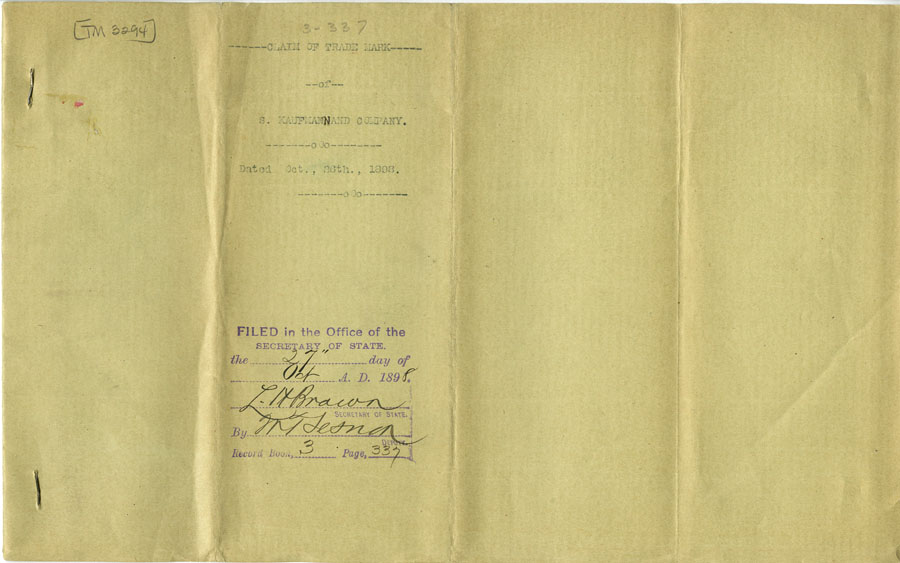 [TM 3294]
3-337
------CLAIM OF TRADE MARK-----
--of--
S. KAUFMANNAND COMPANY.
-------oOo--------
Dated Oct., th., 1898.
-------oOo-------
FILED in the Office of the
SECRETARY OF STATE.
the 27" day of
Oct A. D. 1898.
L. H Brown
SECRETARY OF STATE.
By
DEPUTY.
Record Book, 3 Page, 337